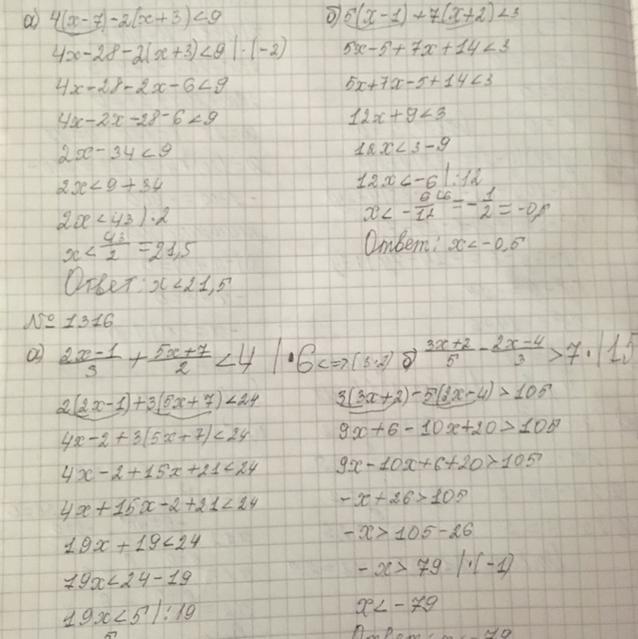 а) 4(x-7)-2(x+3)<9
4x-28-2(x+3)<9 | ·(-2)
4x-28-2x-6<9
4x-2x-28-6<9
2x-34<9
2x<9+34
2x<43 | ·2
x<43/2=21,5
Ответ: x<21,5
б) 5(x-1)+7(x+2)<3
5x-5+7x+14<3
5x+7x-5+14<3
12x+9<3
12x<3-9
12x<-6 | :12
x<-6/12=-1/2=-0,5
Ответ: x<-0,5
№ 1316
а) (2x-1)/3+(5x+7)/2<4 | ·6<=>(3·2)
2(2x-1)+3(5x+7)<24
4x-2+3(5x+7)<24
4x-2+15x+21<24
4x+15x-2+21<24
19x+19<24
19x<24-19
19x<5 | :19
5
б) (3x+2)/5-(2x-4)/3>7 ·|15
3(3x+2)-5(2x-4)>105
9x+6-10x+20>105
9x-10x+6+20>105
-x+26>105
-x>105-26
-x>79 | ·(-1)
x<-79
Ответ: x<-79